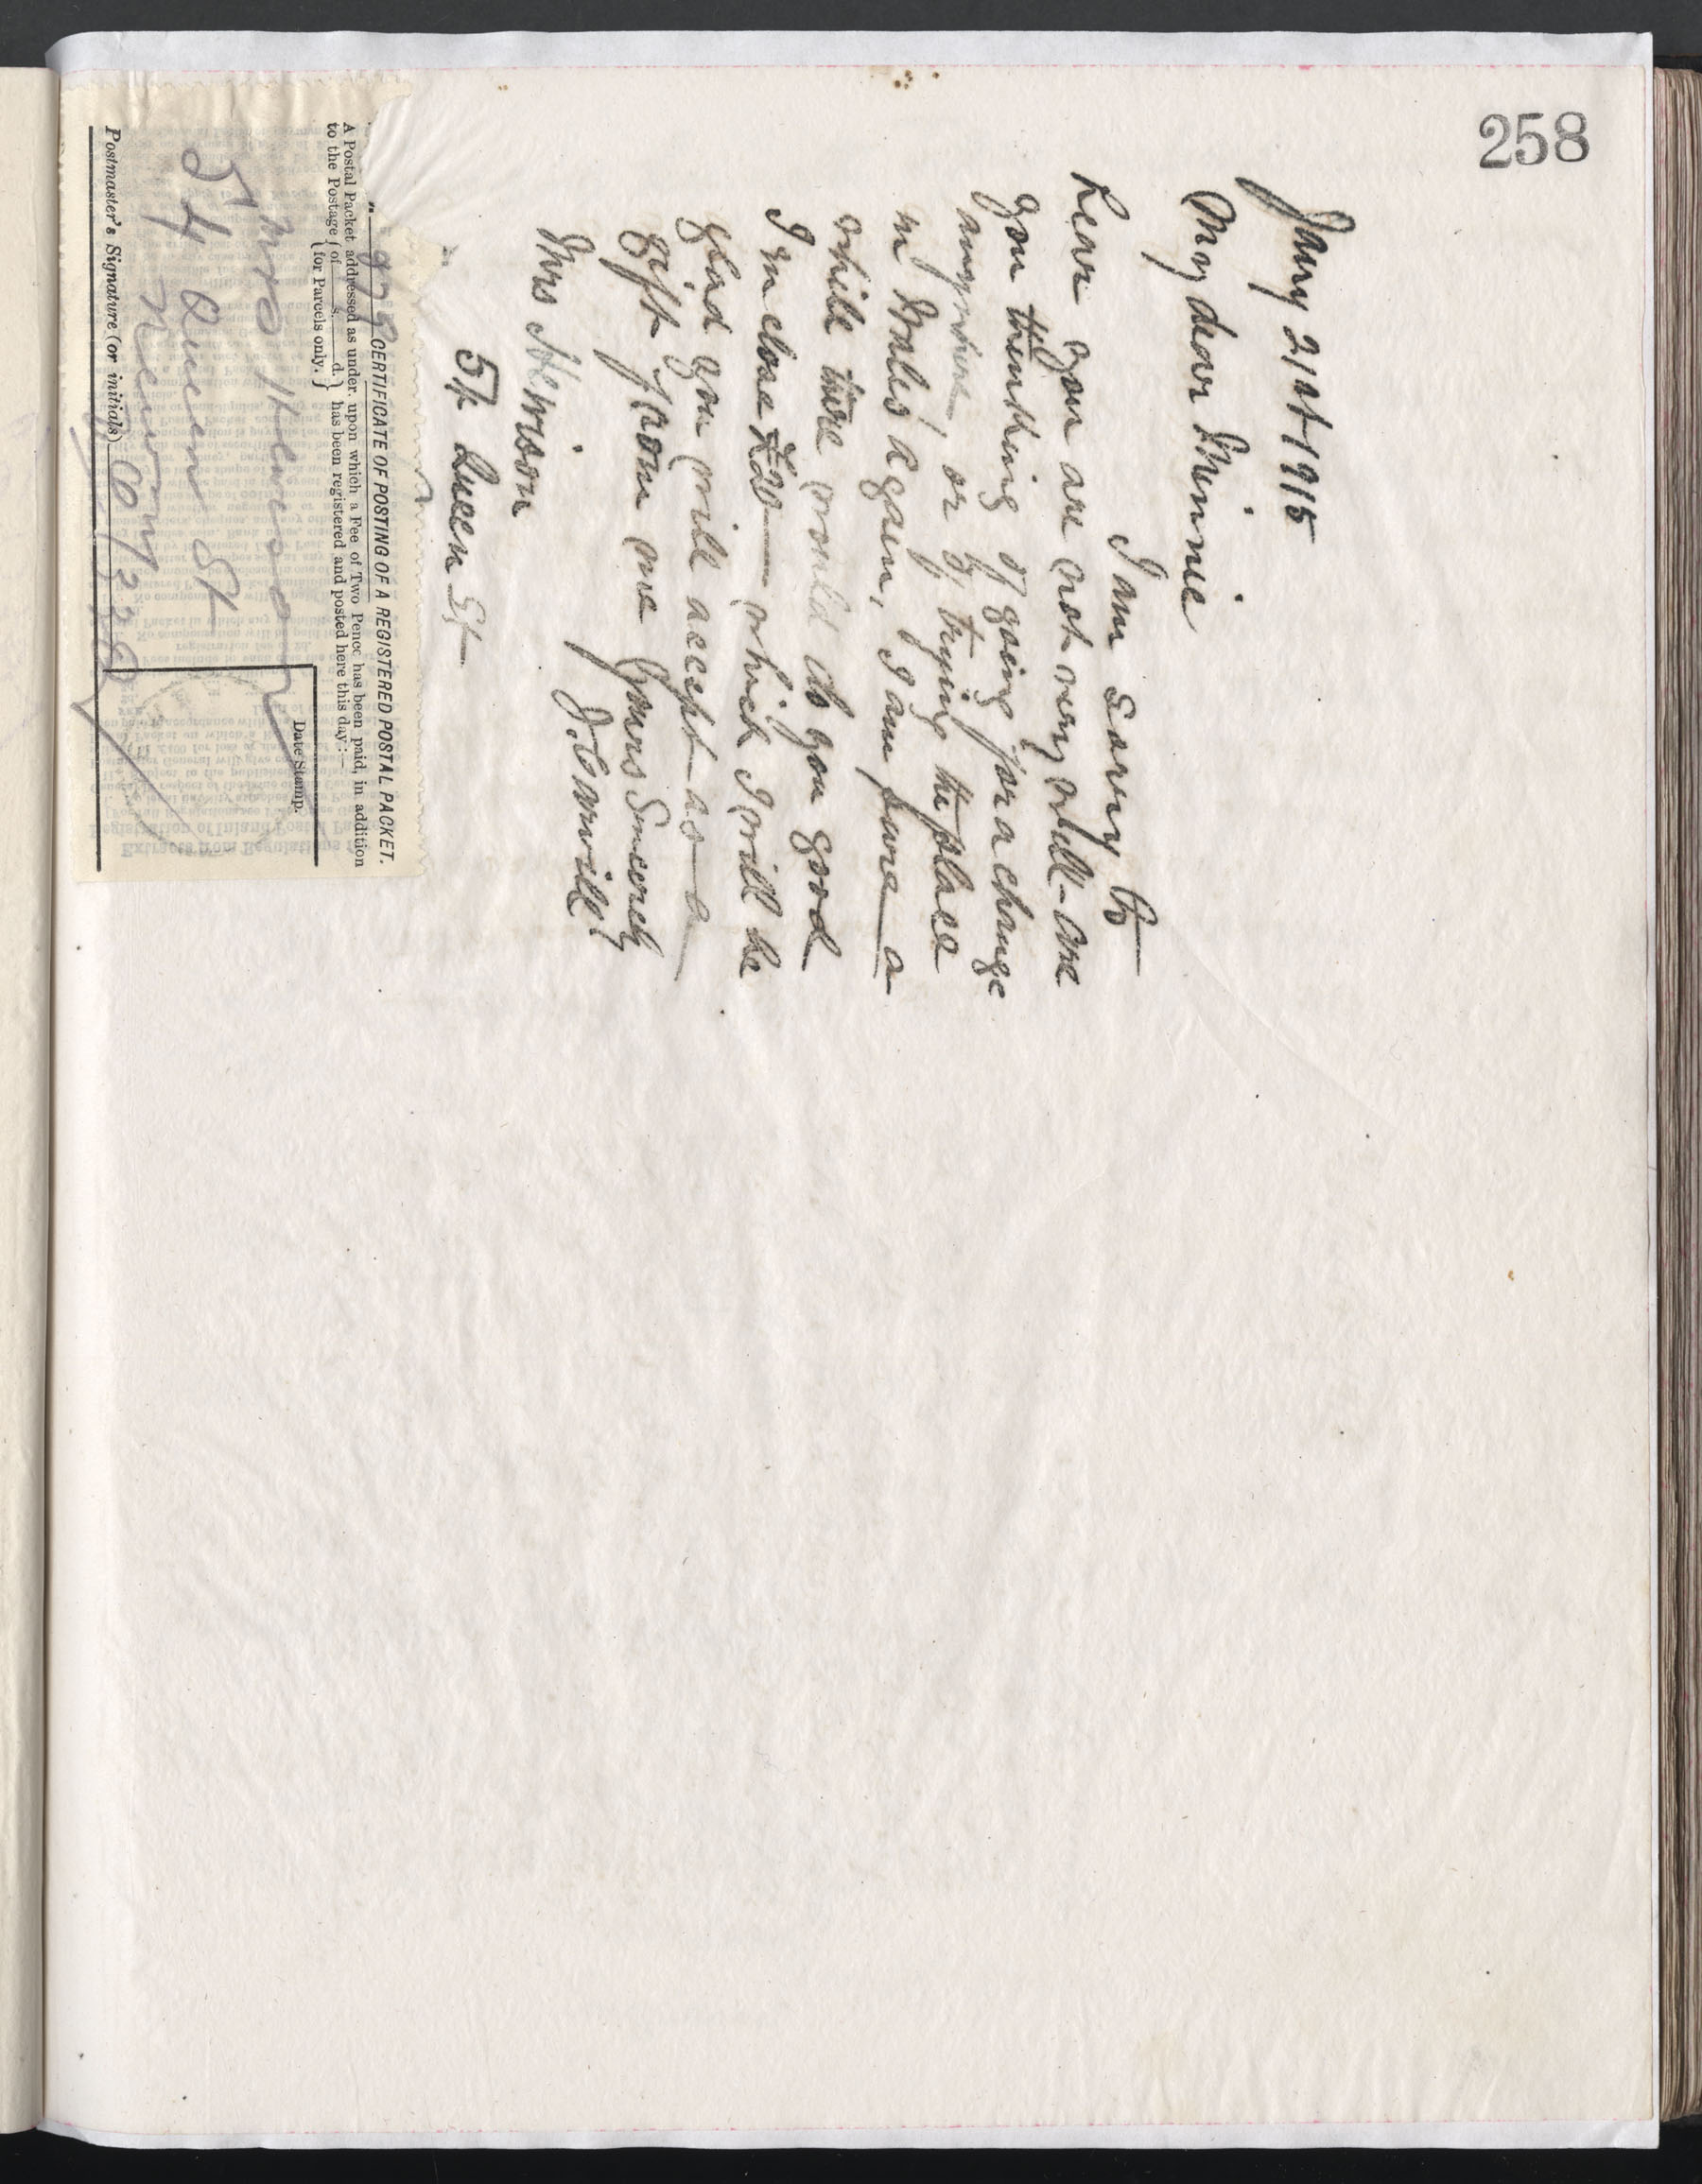 258
Jany 21st 1915
My dear Minnie
I am sorry to
hear you are not very well - are
you thinking of going for a change
anywhere, or of trying the place
in Wales again, I am sure a
while there would do you good
I inclose £20 — which I will be
glad you will accept as a
gift from me Yours Sincerely
J. C.
Mrs Hewison
54 Queen St
CERTIFICATE OF POSTING OF A REGISTERED POSTAL PACKET.
A Postal Packet addressed as under, upon which a Fee of Two Pence has been paid, in addition
to the Postage { of s. d. } has been registered and posted here this day:—
{ for Parcels only. }
Date Stamp.
Mrs Hewison
54 Queen St
Postmaster's Signature (or initials)